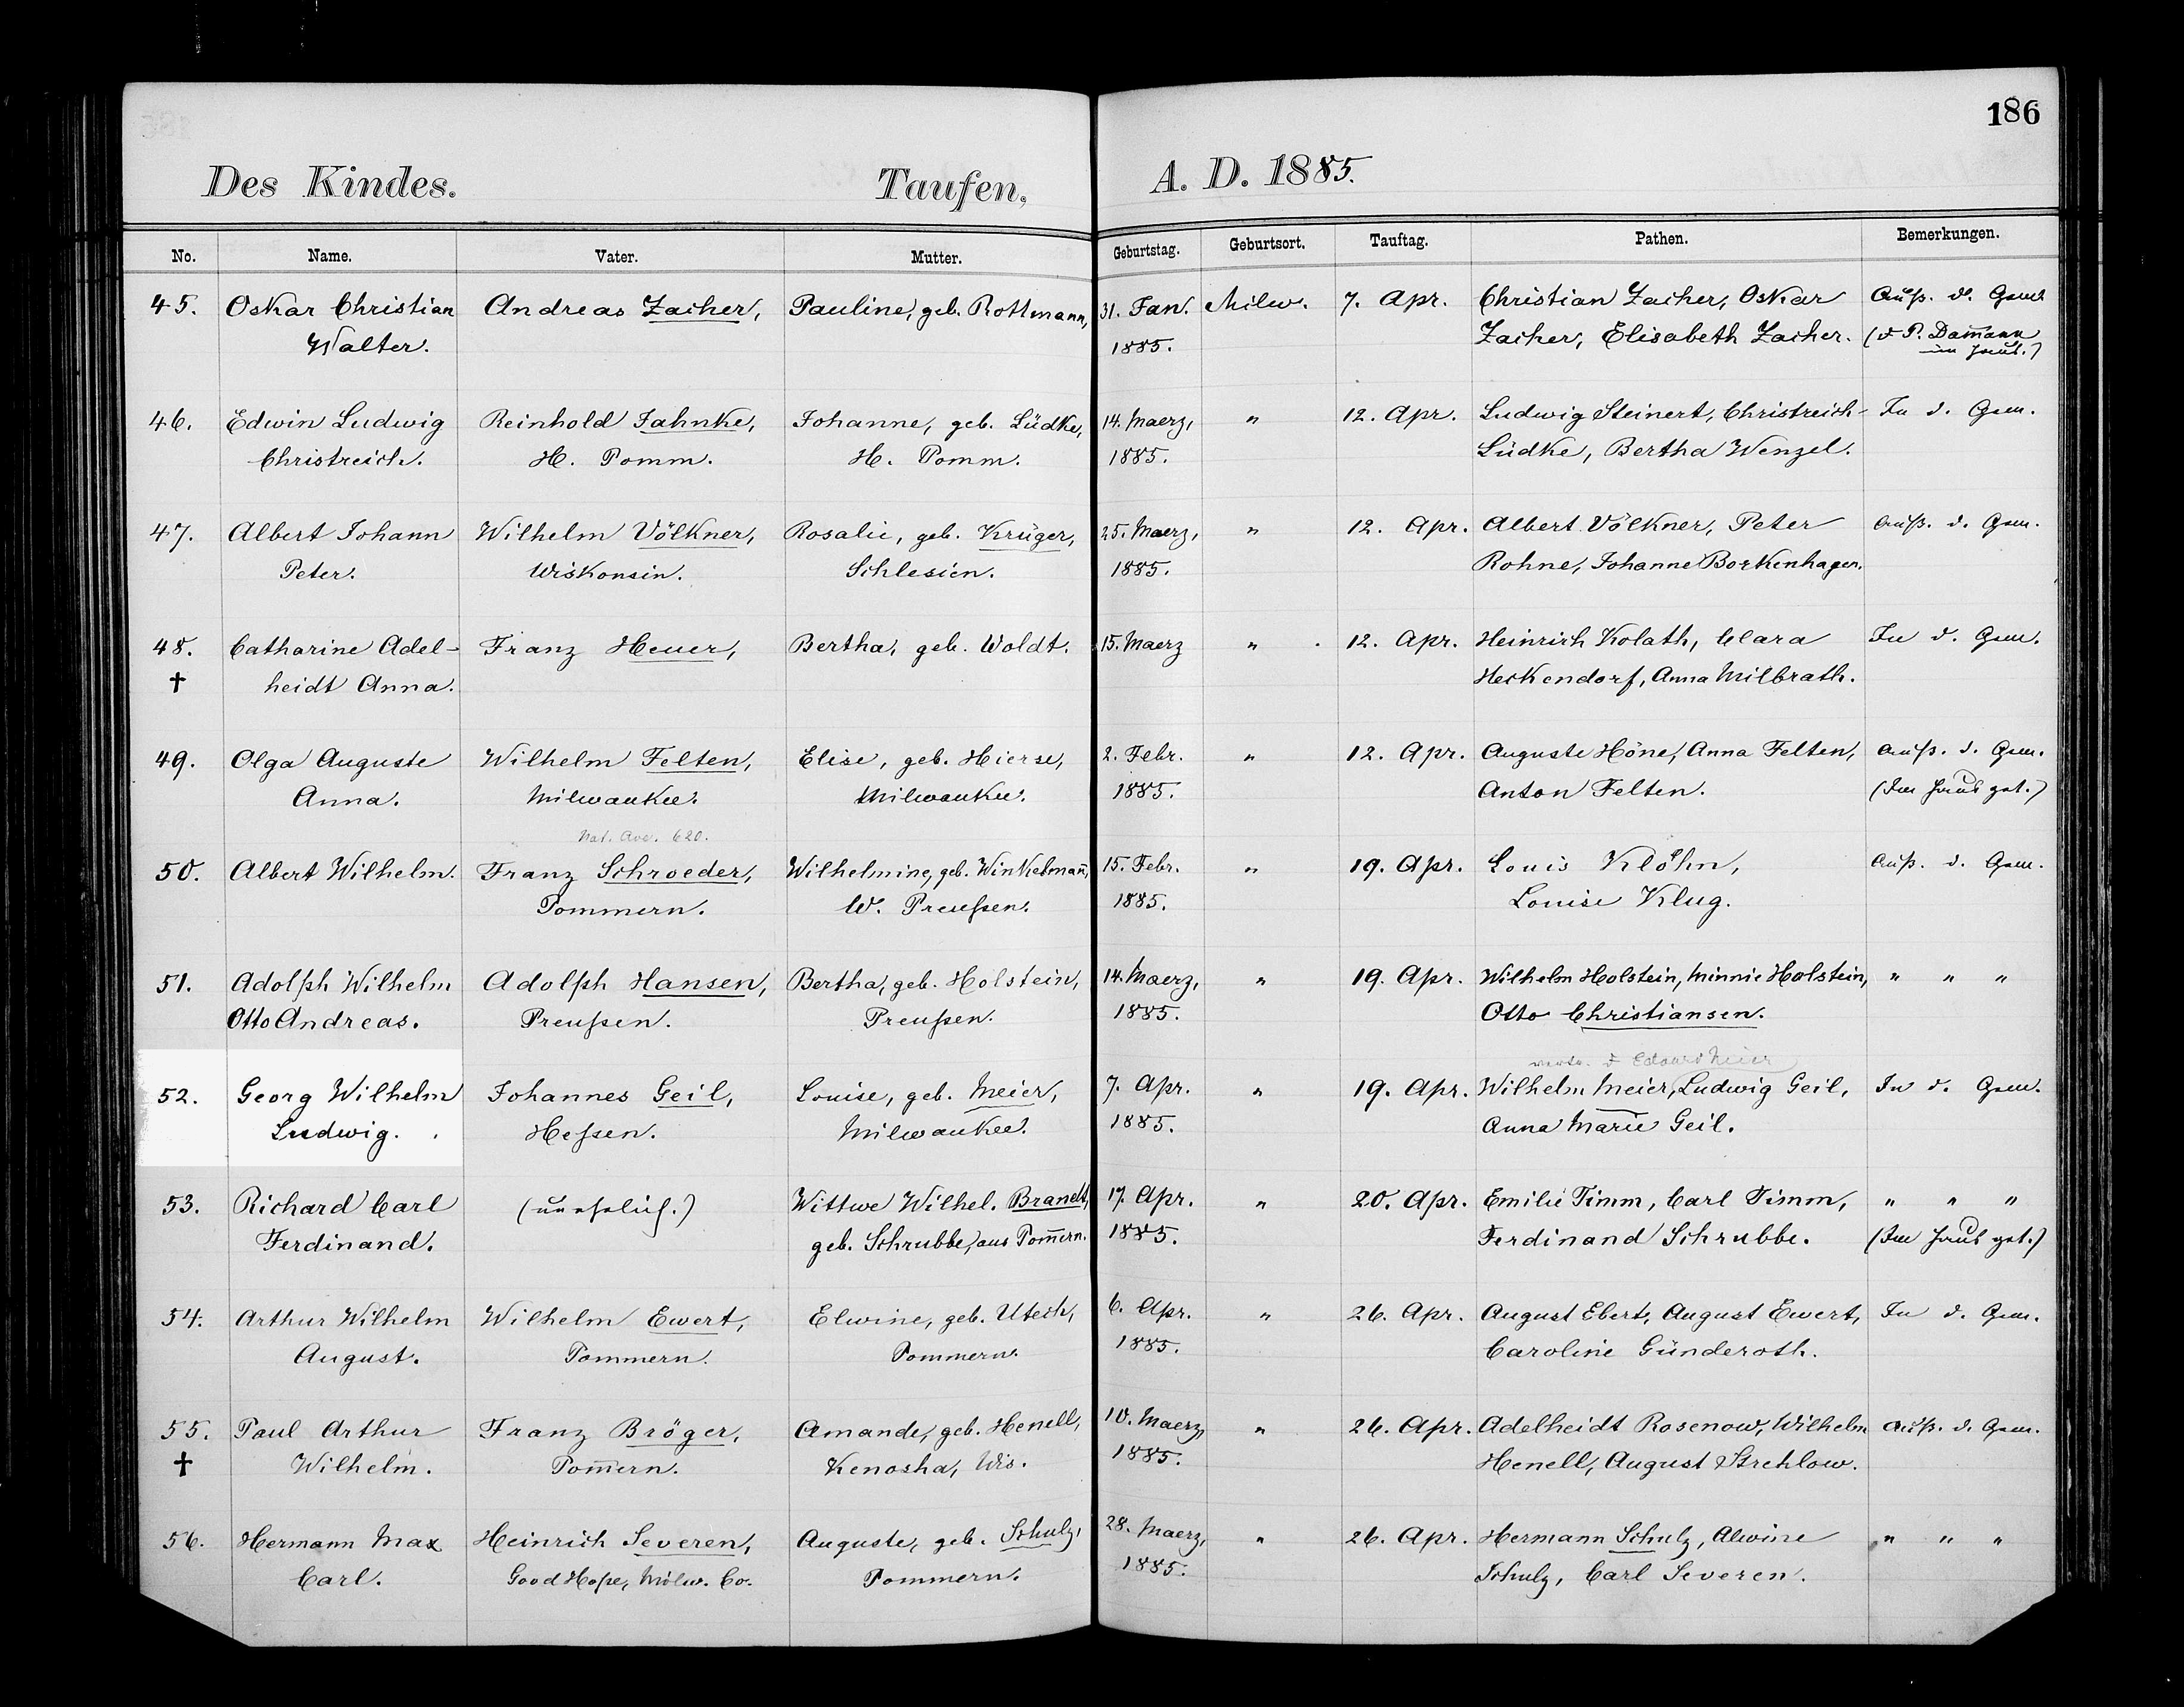 186
Des Kindes. Taufen, A. D. 1885.
No. Name. Vater. Mutter. Geburtstag. Geburtsort. Tauftag. Pathen. Bemerkungen.
45. Oskar Christian Andreas Zacher, Pauline, geb. Rottmann, 31. Jan. Milw. 7. Apr. Christian Zacher, Oskar Auß. d. Gem.
Walter. 1885. Zacher, Elisabeth Zacher. (v P. Dam̅ann
im Haus.)
46. Edwin Ludwig Reinhold Jahnke, Johanne, geb. Lüdke, 14. Maerz, " 12. Apr. Ludwig Steinert, Christreich- In d. Gem.
Christreich. H. Pomm. H. Pomm. 1885. Lüdke, Bertha Wenzel.
47. Albert Johann Wilhelm Völkner, Rosalie, geb. Krüger, 25. Maerz, " 12. Apr. Albert Völkner, Peter Auß. d. Gem.
Peter. Wiskonsin. Schlesien. 1885. Rohne, Johanne Borkenhagen.
48. Catharine Adel- Franz Heuer, Bertha, geb. Woldt. 15. Maerz " 12. Apr. Heinrich Kolath, Clara In d. Gem.
† heidt Anna. Heckendorf, Anna Milbrath.
49. Olga Auguste Wilhelm Felten, Elise, geb. Hierse, 2. Febr. " 12. Apr. Auguste Höne, Anna Felten, Auß. d. Gem.
Anna. Milwaukee. Milwaukee. 1885. Anton Felten. (Im Haus get.)
Nat. Ave. 620.
50. Albert Wilhelm. Franz Schroeder, Wilhelmine, geb. Winkelman̅, 15. Febr. " 19. Apr. Louis Klöhn, Auß. d. Gem.
Pommern. W. Preußen. 1885. Louise Klug.
51. Adolph Wilhelm Adolph Hansen, Bertha, geb. Holstein, 14. Maerz, " 19. Apr. Wilhelm Holstein, Minnie Holstein, " " "
Otto Andreas. Preußen. Preußen. 1885. Otto Christiansen.
Edouard Meier
52. Georg Wilhelm Johannes Geil, Louise, geb. Meier, 7. Apr. " 19. Apr. Wilhelm Meier, Ludwig Geil, In d. Gem.
Ludwig. Heßen. Milwaukee. 1885. Anna Marie Geil.
53. Richard Carl (unehelich.) Wittwe Wilhel. Brandt, 17. Apr. " 20. Apr. Emilie Timm, Carl Timm, " " "
Ferdinand. geb. Schrubbe, aus Pom̅ern. 1885. Ferdinand Schrubbe. (Im Haus get.)
54. Arthur Wilhelm Wilhelm Ewert, Elwine, geb. Utech, 6. Apr. " 26. Apr. August Ebert, August Ewert, In d. Gem.
August. Pommern. Pommern. 1885. Caroline Günderoth.
55. Paul Arthur Franz Bröger, Amande, geb. Henell, 10. Maerz, " 26. Apr. Adelheidt Rosenow, Wilhelm Auß. d. Gem.
† Wilhelm. Pom̅ern. Kenosha, Wis. 1885. Henell, August Strehlow.
56. Hermann Max Heinrich Severen, Auguste, geb. Schulz, 28. Maerz, " 26. Apr. Hermann Schulz, Alwine " " "
Carl. Good Hope, Milw. Co. Pommern. 1885. Schulz, Carl Severen.